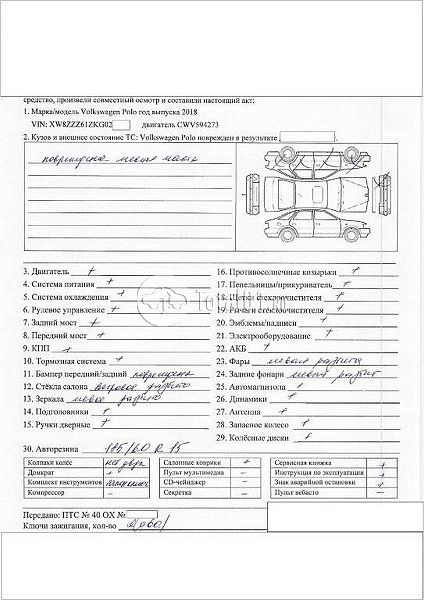 средство, произвели совместный осмотр и составили настоящий акт:
1. Марка/модель Volkswagen Polo год выпуска 2018
VIN: XW8ZZZ61ZKG02 двигатель CWV594273
2. Кузов и внешнее состояние ТС: Volkswagen Polo поврежден в результате
повреждена левая
3. Двигатель +
4. Система питания +
5. Система охлаждения +
6. Рулевое управление +
7. Задний мост +
8. Передний мост +
9. КПП +
10. Тормозная система +
11. Бампер передний/задний повреждена
12. Стёкла салона ветровое разбито
13. Зеркала левое разбито
14. Подголовники +
15. Ручки дверные +
16. Противосолнечные козырьки +
17. Пепельницы/прикуриватель +
18. Щетки стеклоочистителя +
19. Рычаги стеклоочистителя +
20. Эмблемы/надписи +
21. Электрооборудование +
22. АКБ +
23. Фары левая разбита
24. Задние фонари левый разбит
25. Автомагнитола +
26. Динамики +
27. Антенна +
28. Запасное колесо +
29. Колёсные диски +
30. Авторезина 185/60 R 15
Колпаки колёс
Домкрат –
Комплект инструментов
Компрессор –
Салонные коврики +
Пульт мультимедиа –
CD-чейнджер –
Секретка –
Сервисная книжка +
Инструкция по эксплуатации +
Знак аварийной остановки +
Пульт вебасто –
Передано: ПТС № 40 ОХ №
Ключи зажигания, кол-во